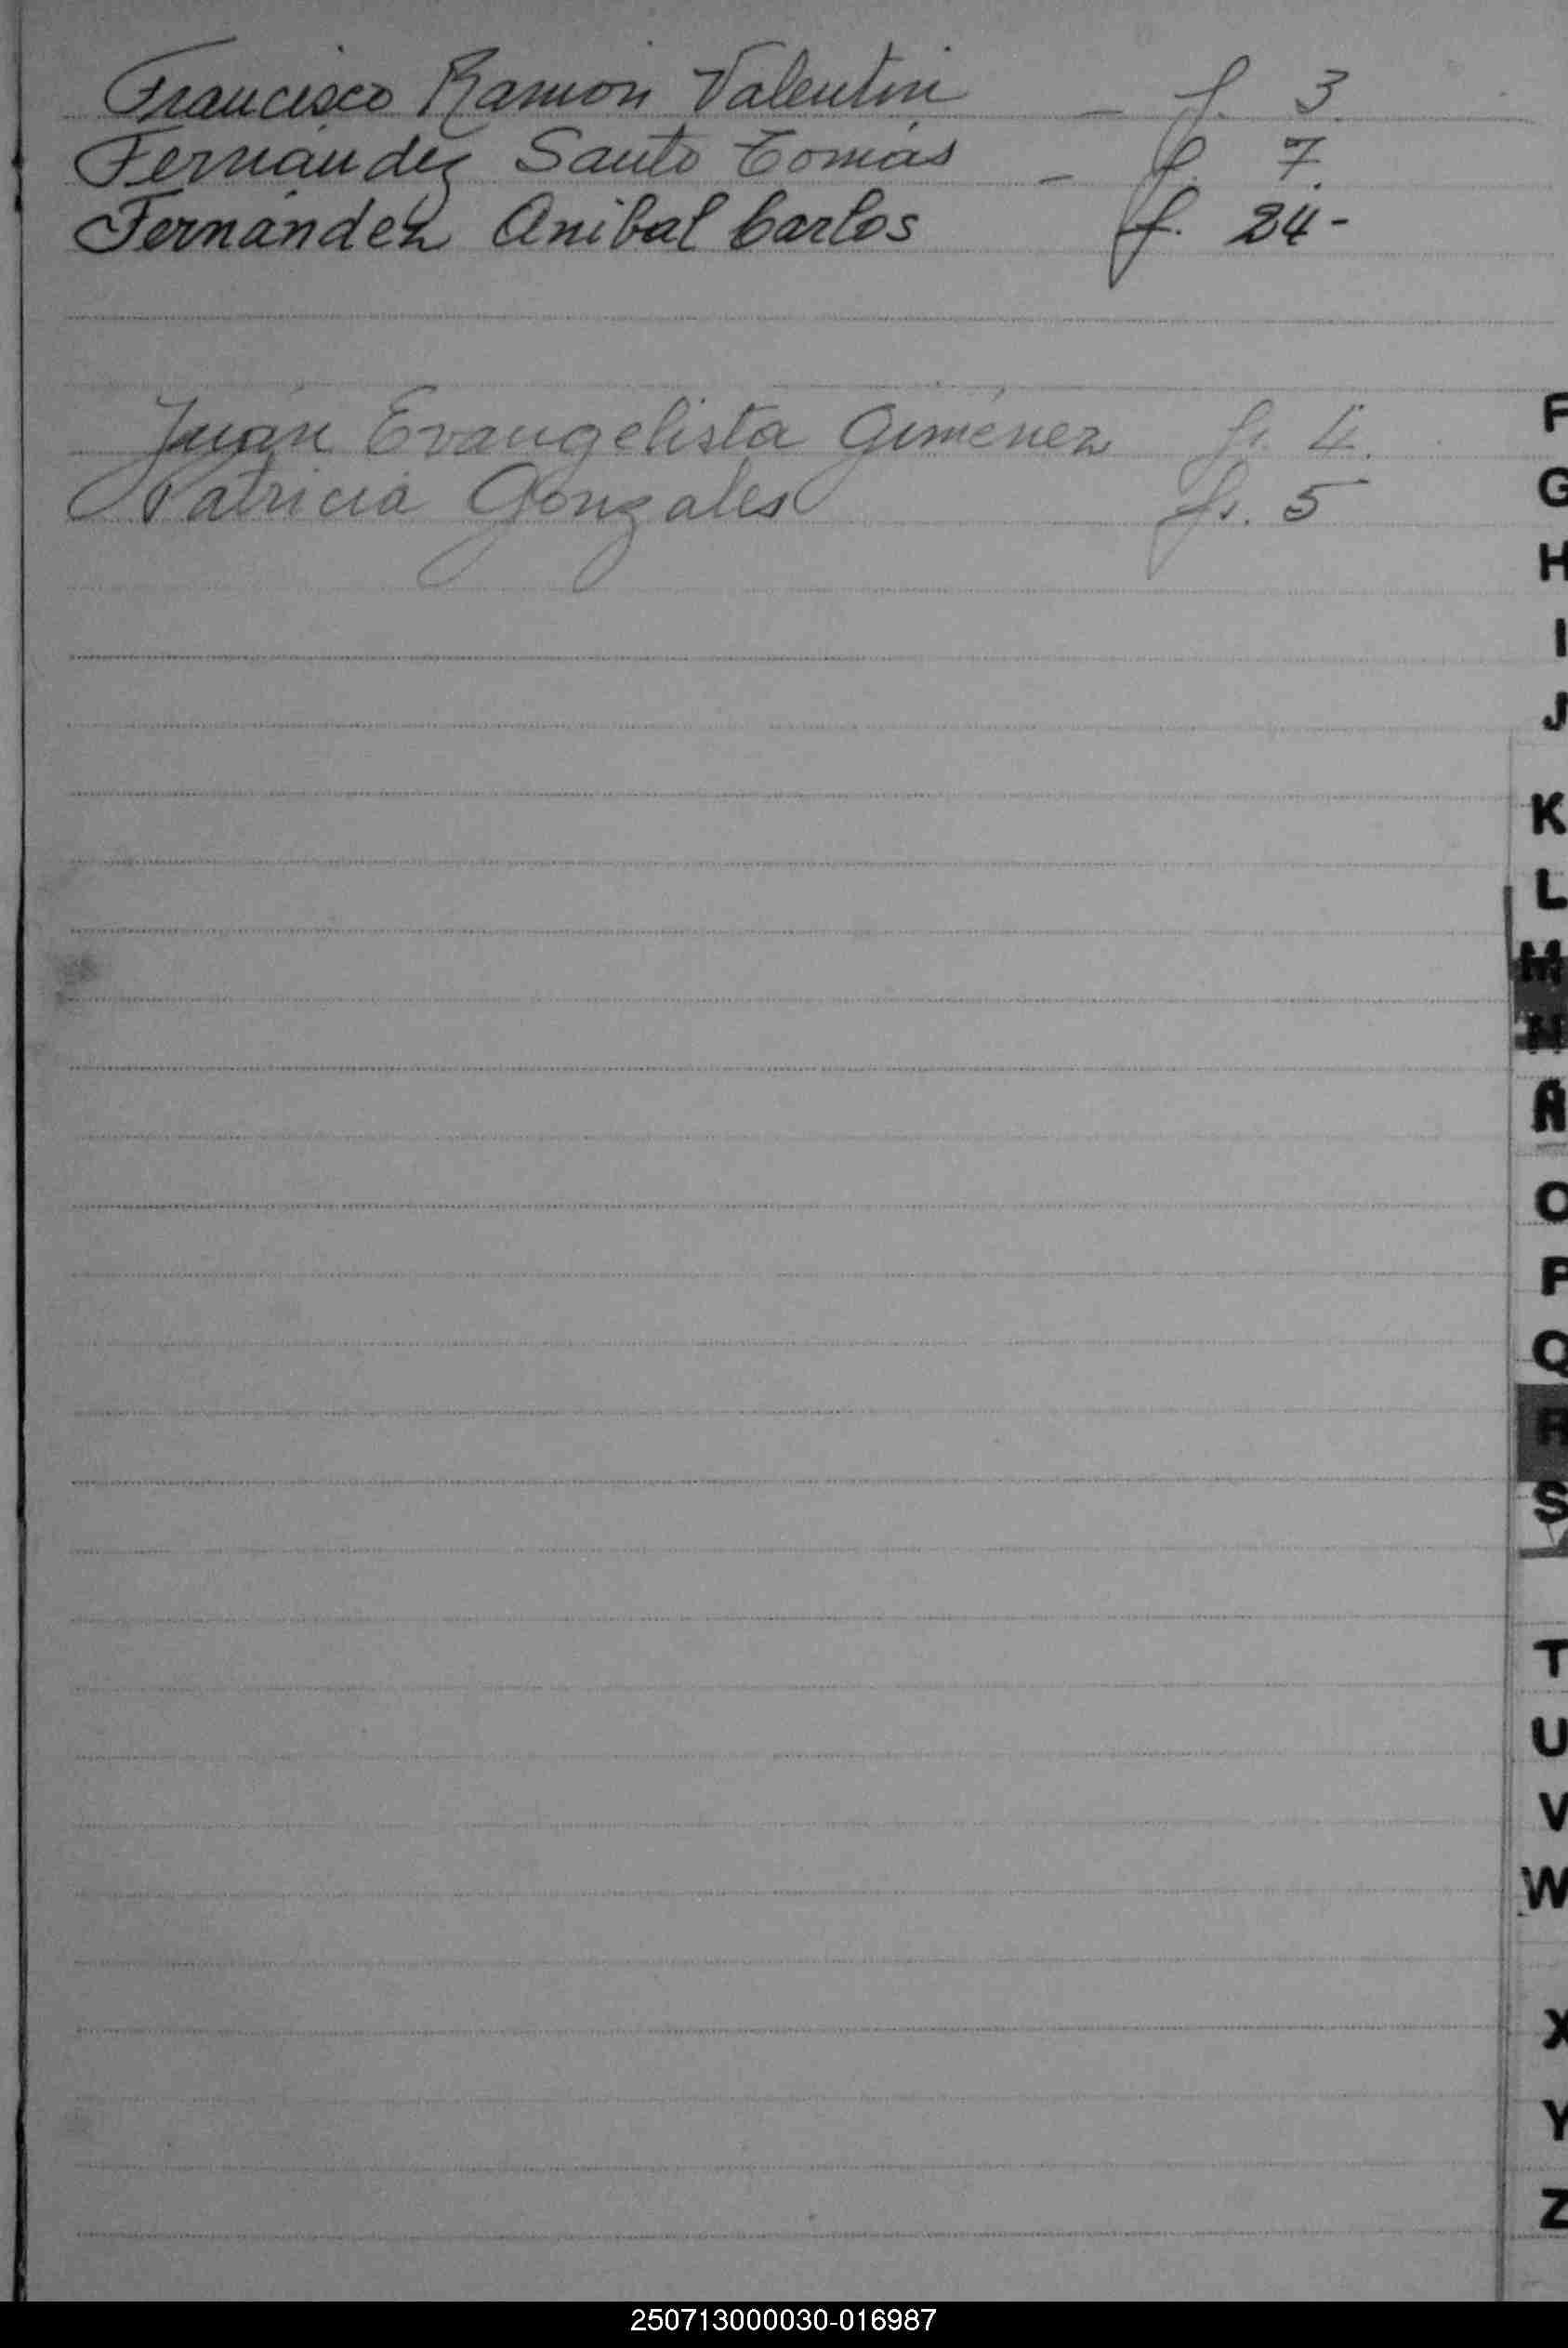 Francisco Ramón Valentín – f. 3.
Fernández Santo Tomás – f. 7.
Fernández Anibal Carlos f. 24-
Juán Evangelista Giménez fs. 4.
Patricia Gonzales fs. 5
F
G
H
I
J
K
L
M
N
Ñ
O
P
Q
R
S
T
U
V
W
X
Y
Z
250713000030-016987